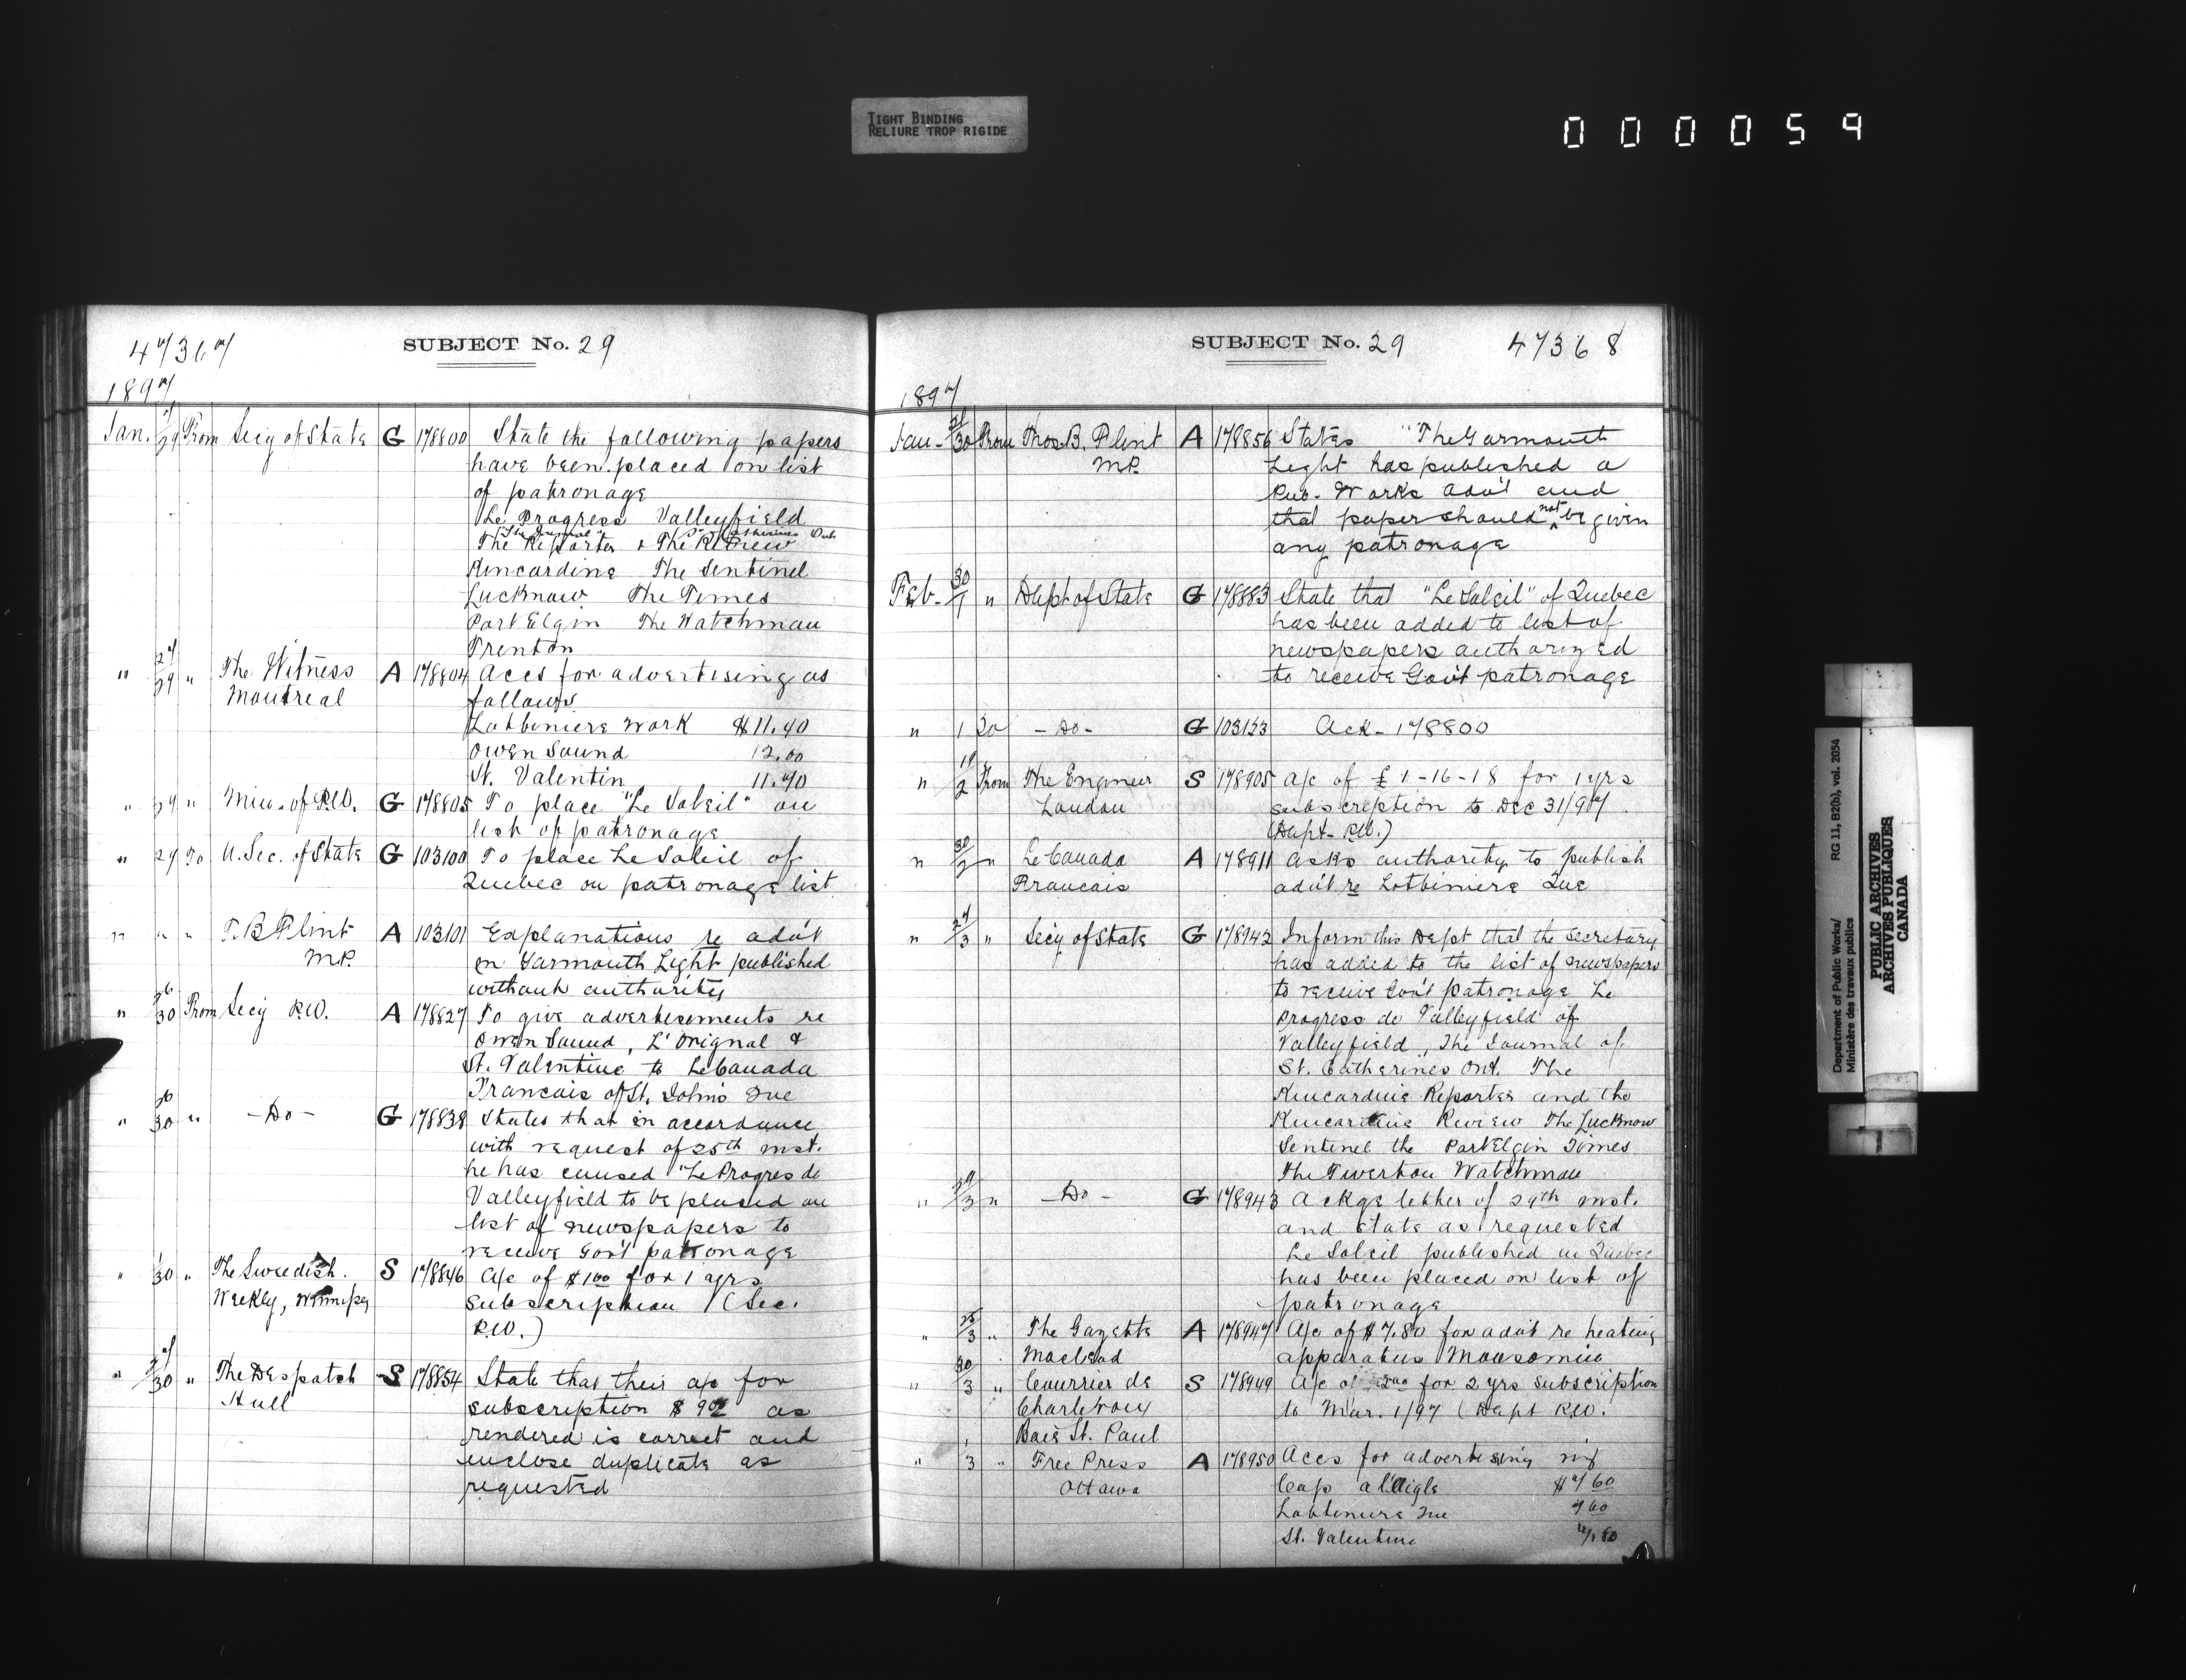 TIGHT BINDING
RELIURE TROP RIGIDE
0 0 0 0 5 9
47367
SUBJECT No. 29
1897
Jan. 29 From Secy of State G 178800 State the following papers
have been placed on list
of patronage
Le Progress Valleyfield
"The Journal" St. Catherines Ont.
The Reporter & The Review
Kincardine The Sentinel
Lucknow The Times
Port Elgin The Watchman
Trenton
" 27/29 " The Witness A 178804 Accs for advertising as
Montreal follows
Lotbiniere Work $11.40
Owen Sound 12.00
St. Valentin 11.40
" 29 " Min. of P.W. G 178805 To place "Le Soleil" on
list of patronage
" 29 To U. Sec. of State G 103100 To place Le Soleil of
Quebec on patronage list
" " " T. B Flint A 103101 Explanations re advt
M.P. in Yarmouth Light published
without authority
" 26/30 From Secy P.W. A 178827 To give advertisements re
Owen Sound, L'Orignal &
St. Valentine to Le Canada
Francais of St. Johns Que
" 26/30 " -Do- G 178838 States that in accordance
with request of 25th inst.
he has caused "Le Progres de
Valleyfield to be placed on
list of newspapers to
receive Gov't patronage
" 1/30 " The Swedish S 178846 A/c of $1.00 for 1 yrs
Weekly, Winnipeg subscription (Sec.
P.W.)
" 30 " The Despatch S 178854 State that their a/c for
Hull subscription $ as
rendered is correct and
enclose duplicate as
requested
SUBJECT No. 29
47368
1897
Jan- 30 From Thos. B. Flint A 178856 States "The Yarmouth
M.P. Light has published a
Pub. Works Adv't and
that paper should not be given
any patronage
Feb- 30/1 " Dept of State G 178883 State that "Le Soleil" of Quebec
has been added to list of
newspapers authorized
to receive Gov't patronage
" 1 To -Do- G 103123 Ack- 178800
" 19/2 From The Engineer S 178905 A/c of £1-16-18 for 1 yrs
London subscription to Dec 31/97.
(Dept. P.W.)
" 30/2 " Le Canada A 178911 Asks authority to publish
Francais adv't re Lotbiniere Que
" 27/3 " Secy of State G 178942 Inform this Dept that the Secretary
has added to the list of newspapers
to receive Gov't patronage Le
Progress de Valleyfield of
Valleyfield, The Journal of
St. Catherines Ont. The
Kincardine Reporter and the
Kincardine Review The Lucknow
Sentinel the Port Elgin Times
The Tiverton Watchman
" 29/3 " -Do- G 178943 Ackge letter of 29th inst.
and state as requested
Le Soleil published in Quebec
has been placed on list of
patronage
" 25/3 " The Gazette A 178947 A/c of $7.80 for adv't re heating
Macleod apparatus Moosomin
" 30/3 " Courrier de S 178949 A/c of 2.00 for 2 yrs subscription
Charlevoix to Mar. 1/97 (Dept P.W.
Baie St. Paul
" 1/3 " Free Press A 178950 Accs for advertising viz
Ottawa Cap a l'Aigle $7.60
Lotbiniere Que 7 60
St. Valentine 7.80
Department of Public Works/
Ministère des travaux publics
RG 11, B2(b), vol. 2054
PUBLIC ARCHIVES
ARCHIVES PUBLIQUES
CANADA